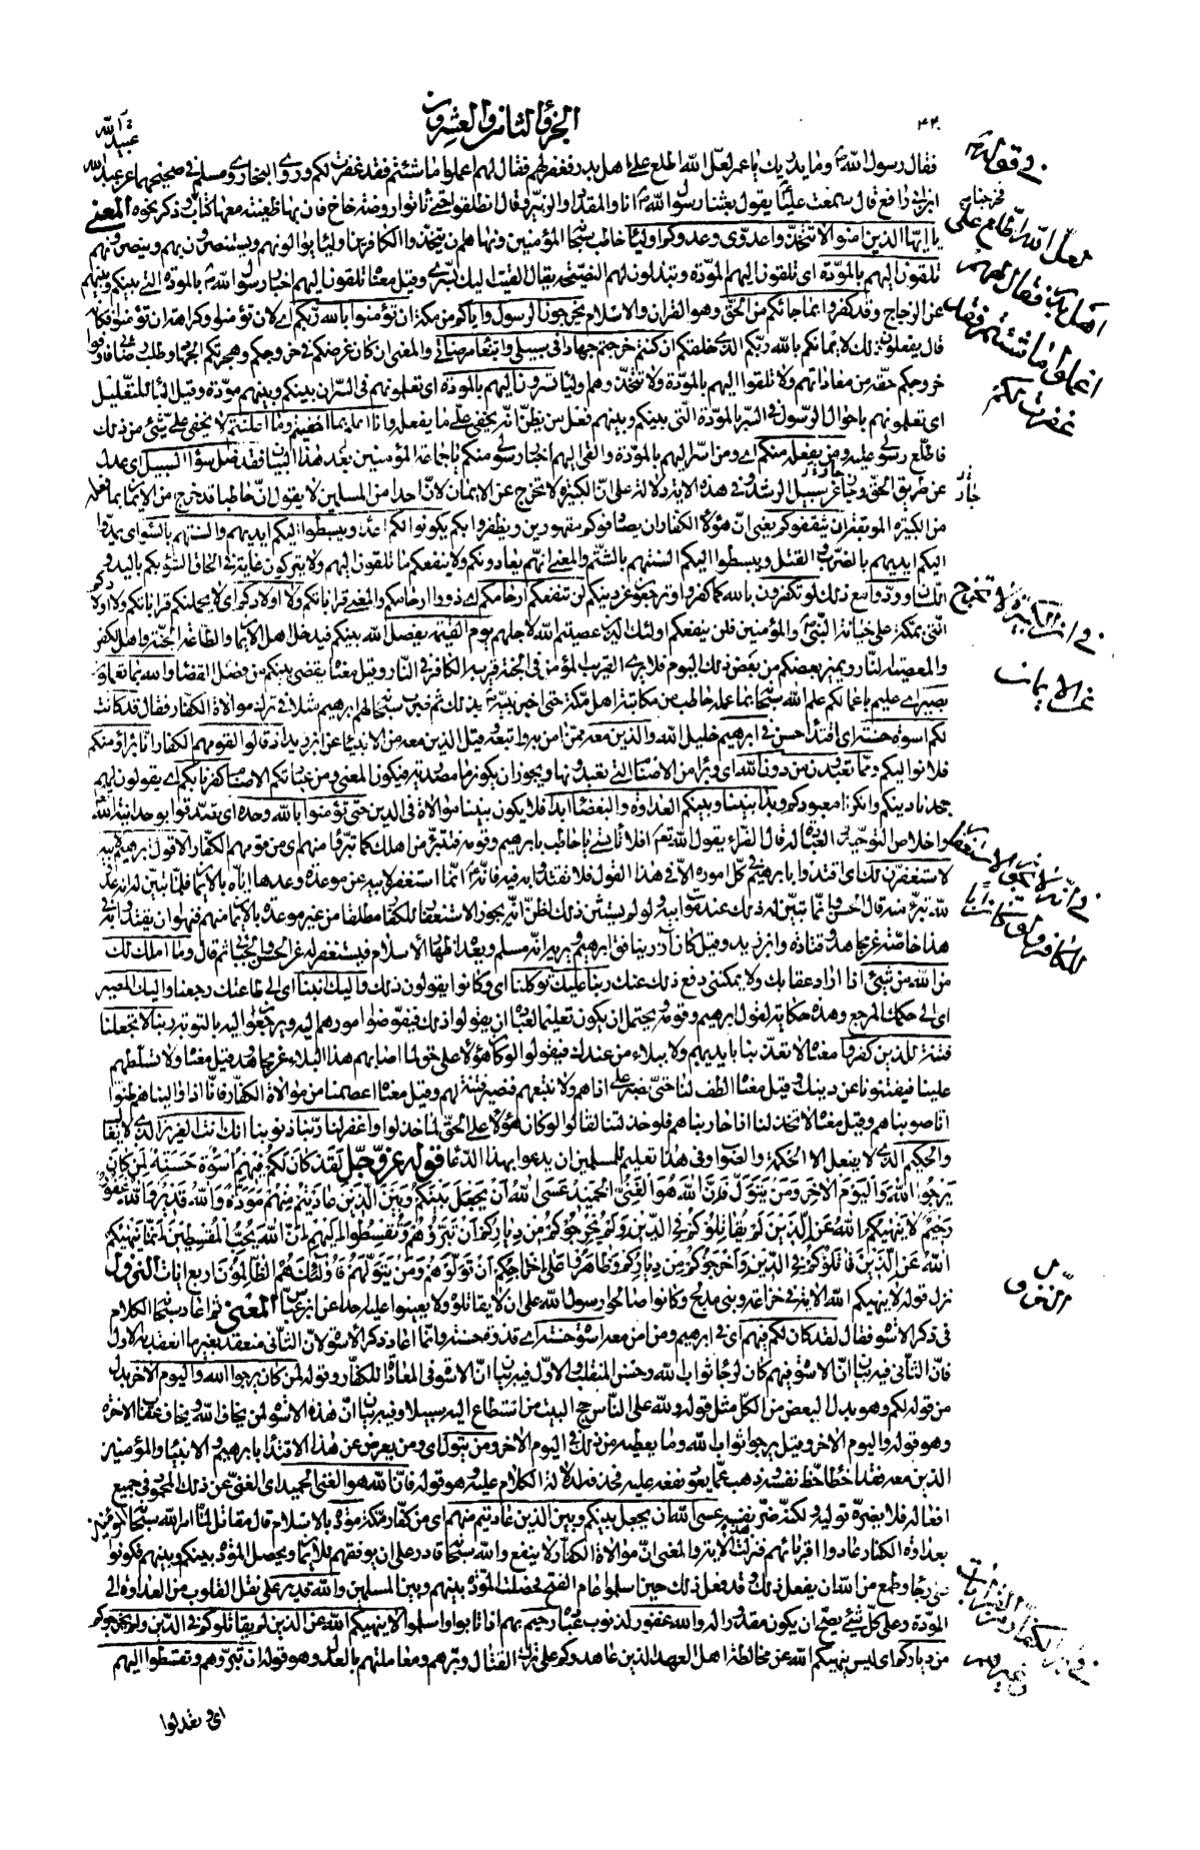 الجزء الثامن والعشرون
٤٤٠
فقال رسول الله وما يدريك يا عمر لعل الله اطلع على اهل بدر فغفر لهم فقال لهم اعملوا ما شئتم فقد غفرت لكم وروى البخاري ومسلم في صحيحيهما عن عبد الله
ابن ابي رافع قال سمعت عليا يقول بعثنا رسول الله انا والمقداد والزبير وقال انطلقوا حتى تاتوا روضة خاخ فان بها ظعينة معها كتاب وذكر نحوه المعنى
يا ايها الذين امنوا لا تتخذوا عدوي وعدوكم اولياء خاطب سبحانه المؤمنين ونهاهم ان يتخذوا الكافرين اولياء يوالونهم ويستنصرون بهم وينصرونهم
تلقون اليهم بالمودة اي تلقون اليهم المودة وتبذلون لهم النصيحة يقال القيت اليك بسري وقيل معناه تلقون اليهم اخبار رسول الله بالمودة التي بينكم وبينهم
عن الزجاج وقد كفروا بما جاءكم من الحق وهو القران والاسلام يخرجون الرسول واياكم من مكة ان تؤمنوا بالله ربكم اي لان تؤمنوا وكراهة ان تؤمنوا فكانه
قال يفعلون ذلك لايمانكم بالله ربكم الذي خلقكم ان كنتم خرجتم جهادا في سبيلي وابتغاء مرضاتي والمعنى ان كان غرضكم في خروجكم وهجرتكم الجهاد وطلب رضاي فاوفوا
خروجكم حقه من معاداتهم ولا تلقوا اليهم بالمودة ولا تتخذوهم اولياء تسرون اليهم بالمودة اي تعلمونهم في السر ان بينكم وبينهم مودة وقيل الباء للتعليل
اي تعلمونهم باحوال الرسول في السر بالمودة التي بينكم وبينهم فعل من يظن انه يخفى علي ما يفعله وانا اعلم بما اخفيتم وما اعلنتم لا يخفى علي شيء من ذلك
فاطلع رسولي عليه ومن يفعله منكم اي ومن اسر اليهم بالمودة والقى اليهم اخبار رسولي منكم يا جماعة المؤمنين بعد هذا البيان فقد ضل سواء السبيل اي عدل
عن طريق الحق وجار عن سبيل الرشد وفي هذه الاية دلالة على ان الكبيرة لا تخرج عن الايمان لان احدا من المسلمين لا يقول ان حاطبا قد خرج من الايمان بما فعله
من الكبيرة الموبقة ان يثقفوكم يعني ان هؤلاء الكفار ان يصادفوكم مقهورين ويظفروا بكم يكونوا لكم اعداء ويبسطوا اليكم ايديهم والسنتهم بالسوء اي يمدوا
اليكم ايديهم بالضرب والقتل ويبسطوا اليكم السنتهم بالشتم والمعنى انهم يعادونكم ولا ينفعكم ما تلقون اليهم ولا يتركون غاية في الحاق السوء بكم باليد و
اللسان وودوا مع ذلك لو تكفرون بالله كما كفروا وترجعون عن دينكم لن تنفعكم ارحامكم اي ذووا ارحامكم والمعنى قراباتكم ولا اولادكم اي لا يحملنكم قراباتكم ولا اولادكم
التي بمكة على خيانة النبي والمؤمنين فلن ينفعكم اولئك الذين عصيتم الله لاجلهم يوم القيمة يفصل الله بينكم فيدخل اهل الايمان والطاعة الجنة واهل الكفر
والمعصية النار ويميز بعضكم من بعض ذلك اليوم فلا يرى القريب المؤمن في الجنة قريبه الكافر في النار وقيل معناه يقضي بينكم من فصل القضاء والله بما تعملون
بصير اي عليم باعمالكم علم الله سبحانه بما عمله حاطب من مكاتبة اهل مكة حتى اخبر نبيه بذلك ثم ضرب سبحانه لهم ابرهيم مثلا في ترك موالاة الكفار فقال قد كانت
لكم اسوة حسنة اي اقتداء حسن في ابرهيم خليل الله والذين معه ممن امن به واتبعه وقيل الذين معه من الانبياء عن ابن زيد اذ قالوا لقومهم الكفار انا براؤ منكم
فلا نواليكم ومما تعبدون من دون الله اي وبراء من الاصنام التي تعبدونها ويجوز ان يكون ما مصدرية فيكون المعنى ومن عبادتكم الاصنام كفرنا بكم اي يقولون لهم
جحدنا دينكم وانكرنا معبودكم وبدا بيننا وبينكم العداوة والبغضاء ابدا فلا يكون بيننا موالاة في الدين حتى تؤمنوا بالله وحده اي تصدقوا بوحدانية الله
واخلاص التوحيد والعبادة له قال الفراء يقول الله تعالى افلا تاتسي يا حاطب بابرهيم وقومه فتتبرأ من اهلك كما تبرؤا منهم اي من قومهم الكفار الا قول ابرهيم لابيه
لاستغفرن لك اي اقتدوا بابرهيم في كل اموره الا في هذا القول فلا تقتدوا به فيه فانه انما استغفر لابيه عن موعدة وعدها اياه بالايمان فلما تبين له انه عدو
لله تبرأ منه قال الحسن وانما تبين له ذلك عند موت ابيه ولو لم يستثن ذلك لظن انه يجوز الاستغفار للكفار مطلقا من غير موعدة بالايمان منهم فنهوا ان يقتدوا به في
هذا خاصة عن مجاهد وقتادة وابن زيد وقيل كان آزر ينافق ابرهيم ويريه انه مسلم ويعده اظهار الاسلام فيستغفر له عن الحسن والجبائي ثم قال وما املك لك
من الله من شيء اذا اراد عقابك ولا يمكنني دفع ذلك عنك ربنا عليك توكلنا اي وكانوا يقولون ذلك واليك انبنا اي الى طاعتك رجعنا واليك المصير
اي الى حكمك المرجع وهذه حكاية لقول ابرهيم وقومه ويحتمل ان يكون تعليما لعباده ان يقولوا ذلك فيفوضوا امورهم اليه ويرجعوا اليه بالتوبة ربنا لا تجعلنا
فتنة للذين كفروا معناه لا تعذبنا بايديهم ولا ببلاء من عندك فيقولوا لو كان هؤلاء على حق لما اصابهم هذا البلاء عن مجاهد وقيل معناه ولا تسلطهم
علينا فيفتنونا عن دينك وقيل معناه الطف لنا حتى نصبر على اذاهم ولا نتبعهم فنصير فتنة لهم وقيل معناه اعصمنا من موالاة الكفار فانا اذا واليناهم ظنوا
انا صوبناهم وقيل معناه لا تخذلنا اذا حاربناهم فلو خذلتنا لقالوا لو كان هؤلاء على الحق لما خذلوا واغفر لنا ربنا ذنوبنا انك انت العزيز الذي لا يغالب
والحكيم الذي لا يفعل الا الحكمة والصواب وفي هذا تعليم للمسلمين ان يدعوا بهذا الدعاء قوله عز وجل لقد كان لكم فيهم اسوة حسنة لمن كان
يرجوا الله واليوم الاخر ومن يتول فان الله هو الغني الحميد عسى الله ان يجعل بينكم وبين الذين عاديتم منهم مودة والله قدير والله غفور
رحيم لا ينهيكم الله عن الذين لم يقاتلوكم في الدين ولم يخرجوكم من دياركم ان تبروهم وتقسطوا اليهم ان الله يحب المقسطين انما ينهيكم
الله عن الذين قاتلوكم في الدين واخرجوكم من دياركم وظاهروا على اخراجكم ان تولوهم ومن يتولهم فاولئك هم الظالمون اربع ايات النزول
نزل قوله لا ينهيكم الله الاية في خزاعة وبني مدلج وكانوا صالحوا رسول الله على ان لا يقاتلوه ولا يعينوا عليه احدا عن ابن عباس المعنى ثم اعاد سبحانه الكلام
في ذكر الاسوة فقال لقد كان لكم فيهم اي في ابرهيم ومن امن معه اسوة حسنة اي قدوة حسنة وانما اعاد ذكر الاسوة لان الثاني منعقد بغير ما انعقد به الاول
فان الثاني فيه بيان ان الاسوة فيهم كان لرجاء ثواب الله وحسن المنقلب والاول فيه بيان ان الاسوة في المعاداة للكفار وقوله لمن كان يرجوا الله واليوم الاخر بدل
من قوله لكم وهو بدل البعض من الكل مثل قوله ولله على الناس حج البيت من استطاع اليه سبيلا وفيه بيان ان هذه الاسوة لمن يخاف الله ويخاف عقاب الاخرة
وهو قوله واليوم الاخر وقيل يرجوا ثواب الله وما يعطيه من ذلك في اليوم الاخر ومن يتول اي ومن يعرض عن هذا الاقتداء بابرهيم والانبياء والمؤمنين
الذين معه فقد اخطأ حظ نفسه وذهب عما يعود نفعه عليه فحذف لدلالة الكلام عليه وهو قوله فان الله هو الغني الحميد اي الغني عن ذلك المحمود في جميع
افعاله فلا يضره توليه ولكنه ضر نفسه عسى الله ان يجعل بينكم وبين الذين عاديتم منهم اي من كفار مكة مودة بالاسلام قال مقاتل لما امر الله سبحانه المؤمنين
بعداوة الكفار عادوا اقرباءهم فنزلت هذه الاية والمعنى ان موالاة الكفار لا ينفع والله سبحانه قادر على ان يوفقهم للايمان ويحصل المودة بينكم وبينهم فكونوا
على رجاء وطمع من الله ان يفعل ذلك وقد فعل ذلك حين اسلموا عام الفتح فحصلت المودة بينهم وبين المسلمين والله قدير على نقل القلوب من العداوة الى
المودة وعلى كل شيء يصح ان يكون مقدورا له والله غفور لذنوب عباده رحيم بهم اذا تابوا واسلموا لا ينهيكم الله عن الذين لم يقاتلوكم في الدين ولم يخرجوكم
من دياركم اي ليس ينهيكم الله عن مخالطة اهل العهد الذين عاهدوكم على ترك القتال وبرهم ومعاملتهم بالعدل وهو قوله ان تبروهم وتقسطوا اليهم
اي وتعدلوا
في قوله
لعل الله اطلع على
اهل بدر فقال لهم
اعملوا ما شئتم فقد
غفرت لكم
في ان الكبيرة لا تخرج
عن الايمان